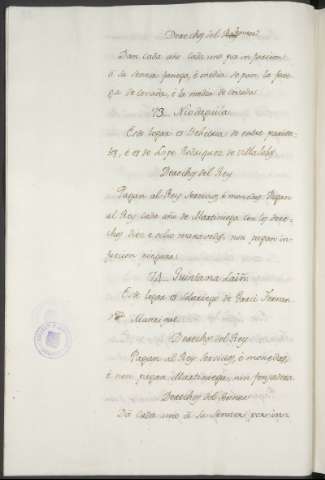 Derechos del Señor
Dan cada año cada uno por infurcion
á la tercia fanega, é media de pan, la fane-
ga de cevada, é la media de
73 Niodaguia
Este logar es Behetria de entre parien-
tes, é es de Lope Rodriguez de Villalobos
Derechos del Rey
Pagan al Rey servicios, é monedas. Pagan
al Rey cada año de Martiniega con los dere-
chos diez e ocho maravedis, non pagan in-
furcion ninguna
74 Quintana Laiñ
Este logar es Solariego de Garci Fernan-
dez Manrique
Derechos del Rey
Pagan al Rey servicios, é monedas,
é non pagan Martiniega, nin fonsadera
Derechos del Señor
Dá cada uno á la por in-